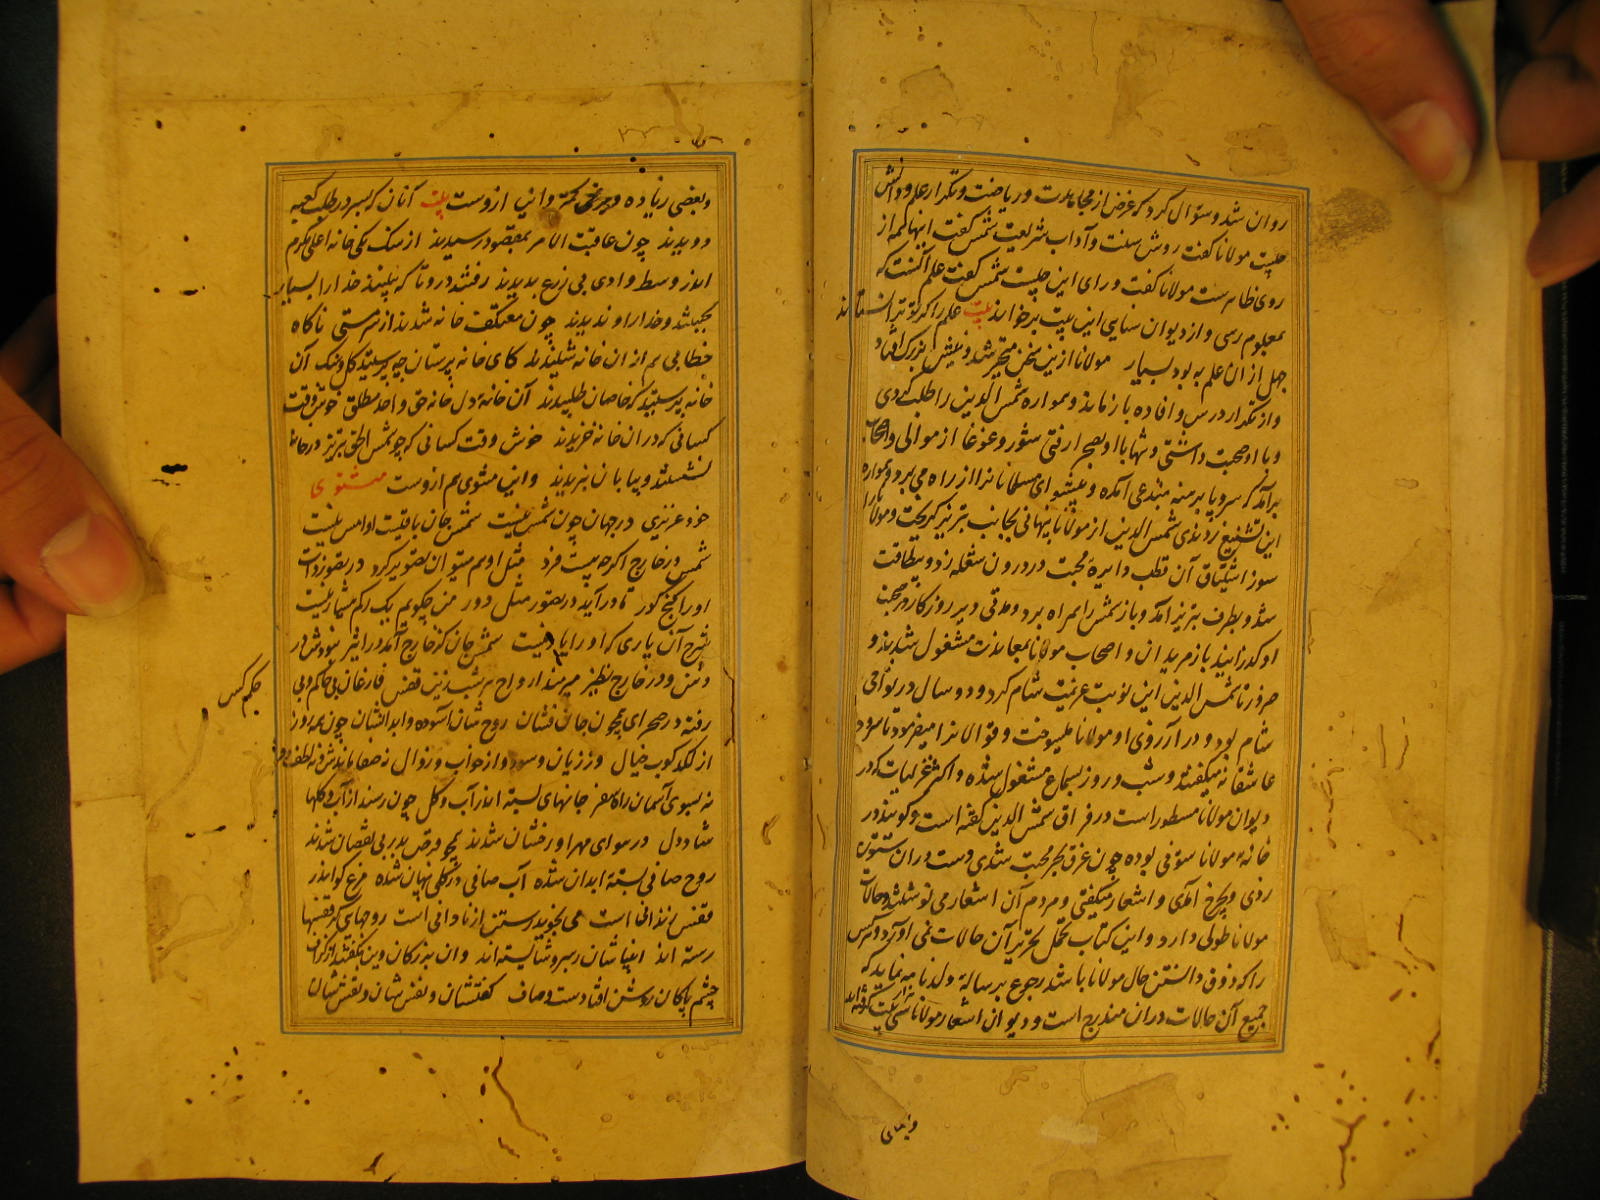 روان شد و سؤال کرد که غرض از مجاهدت و ریاضت و تکرار علم و دانش
چیست مولانا گفت روش سنت و آداب شریعت شمس گفت اینها همه از
روی ظاهرست مولانا گفت ورای این چیست شمس گفت علم آنست که
بمعلوم رسی و از دیوان سنایی این بیت برخواند بیت علم کز تو ترا نستاند
جهل از آن علم به بود بسیار مولانا ازین سخن متحیر شد و پیش بزرگ افتاد
و از تکرار درس و افاده باز ماند و همواره شمس الدین را طلب کردی
و با او صحبت داشتی و تنها با او بصحرا رفتی شور و غوغا از موالی و اصحاب
برآمد که سر و پا برهنه مبتدعی آمده و پیشوای مسلمانانرا از راه می برد و همواره
این تشنیع زدندی شمس الدین از مولانا پنهانی بجانب تبریز گریخت و مولانا را
سوز اشتیاق آن قطب دایره محبت در درون شعله زد و بیطاقت
شد و بطرف تبریز آمد و باز شمس را همراه برد و مدتی دیگر روزگار در صحبت
او گذرانید باز مریدان و اصحاب مولانا بمعاندت مشغول شدند و
ضرورة شمس الدین این نوبت عزیمت شام کرد و دو سال در نواحی
شام بود و در آرزوی او مولانا میسوخت و قوالانرا میفرمود تا سرود
عاشقانه میگفتند و شب و روز بسماع مشغول شده و اکثر غزلیات که در
دیوان مولانا مسطورست در فراق شمس الدین گفته است و گویند در
خانه مولانا ستونی بوده چون غرق بحر محبت شدی دست در آن ستون
زدی و بچرخ آمدی و اشعار میگفتی و مردم آن اشعار می نوشتند و حالات
مولانا طولی دارد و این کتاب تحمل تحریر آن حالات نمی آورد و هر کس
را که ذوق دانستن حال مولانا باشد رجوع برساله ولد نامه نماید که
جمیع آن حالات در آن مندرج است و دیوان اشعار مولانا سی بیت گفته اند
و بعضی
و بعضی زیاده و این ازوست بیت آنان که بسر در طلب کعبه
دویدند چون عاقبت الامر بمقصود رسیدند از سنگ یکی خانه اعلی مکرم
اندر وسط وادی بی زرع بدیدند رفتند درو تا که ببینند خدا را بسیار
بجستند و خدا را و ندیدند چون معتکف خانه شدند از سر مستی ناگاه
خطابی هم از آن خانه شنیدند کای خانه پرستان چه پرستید گل و سنگ آن
خانه پرستید که خاصان طلبیدند آن خانه دل خانه حق واحد مطلق خوش وقت
کسانی که در آن خانه خزیدند خوش وقت کسانی که چو شمس الحق تبریز در خانه
نشستند و بیابان نبریدند و این مثنوی هم ازوست مثنوی
خود غریبی در جهان چون شمس نیست شمس جان باقیست او را امس نیست
شمس در خارج اگرچه هست فرد مثل او هم میتوان تصویر کرد در تصور ذات
او را گنج کو تا درآید در تصور مثل او من چگویم یک رگم هشیار نیست
شرح آن یاری که او را یار نیست شمس جان کو خارج آمد در اثیر نبودش در
ذهن و در خارج نظیر میرهند ارواح هر شب زین قفس فارغان بی حاکم و بی
حکم کس
رفته در صحرای بیچون جانشان روح شان آسوده و ابدانشان چون همه روز
از لگدکوب خیال وز زیان و سود و از خوف و زوال نه صفا ماندش نه لطف و فر
نه بسوی آسمان راه سفر جانهای بسته اندر آب و گل چون رهند از آب و گلها
شاد دل در هوای مهر او رقصان شدند همچو قرص بدر بی نقصان شدند
روح صافی بسته ابدان شده آب صافی در گلی پنهان شده مرغ کو اندر
قفس زندانی است می نجوید رستن از نادانی است روحهایی کز قفسها
رسته اند انبیاشان رهبر و شایسته اند و ان بزرگان این نگفتند از گزاف
چشم پاکان روشن افتادست و صاف گفتشان و نفسشان و نقششان